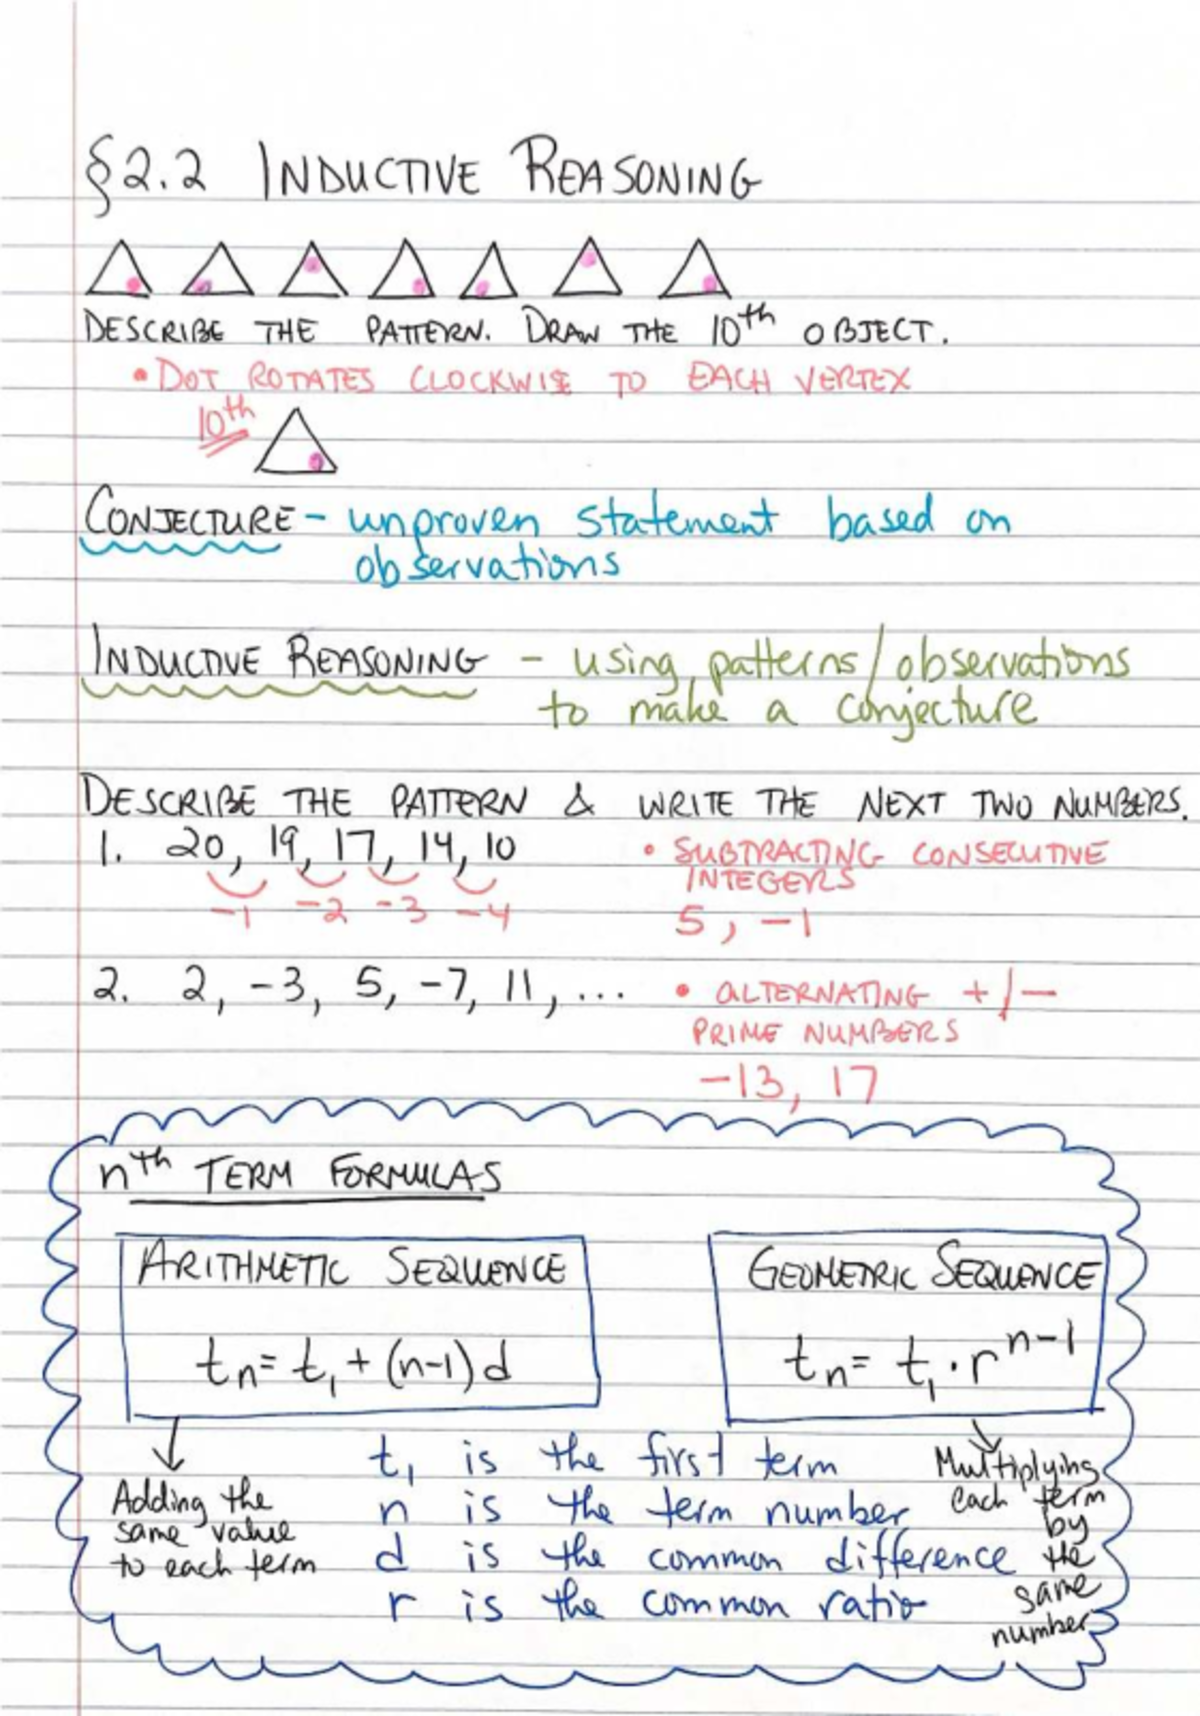 §2.2 INDUCTIVE REASONING
DESCRIBE THE PATTERN. DRAW THE 10th OBJECT.
• DOT ROTATES CLOCKWISE TO EACH VERTEX
10th
CONJECTURE - unproven statement based on
observations
INDUCTIVE REASONING - using patterns/observations
to make a conjecture
DESCRIBE THE PATTERN & WRITE THE NEXT TWO NUMBERS.
1. 20, 19, 17, 14, 10
-1 -2 -3 -4
• SUBTRACTING CONSECUTIVE
INTEGERS
5, -1
2. 2, -3, 5, -7, 11, ...
• ALTERNATING +/-
PRIME NUMBERS
-13, 17
nth TERM FORMULAS
ARITHMETIC SEQUENCE
tn = t1 + (n-1)d
GEOMETRIC SEQUENCE
tn = t1 · r^n-1
Adding the
same value
to each term
t1 is the first term
n is the term number
d is the common difference
r is the common ratio
Multiplying
each term
by
the
same
number